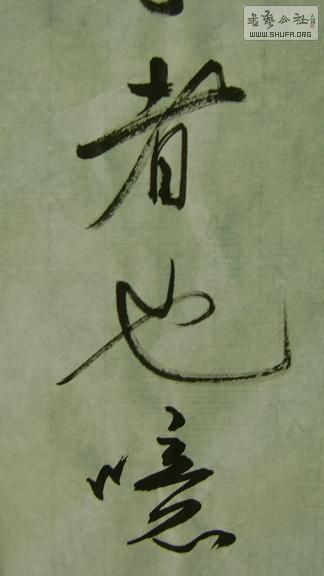 者也噫
书艺公社
WWW.SHUFA.ORG